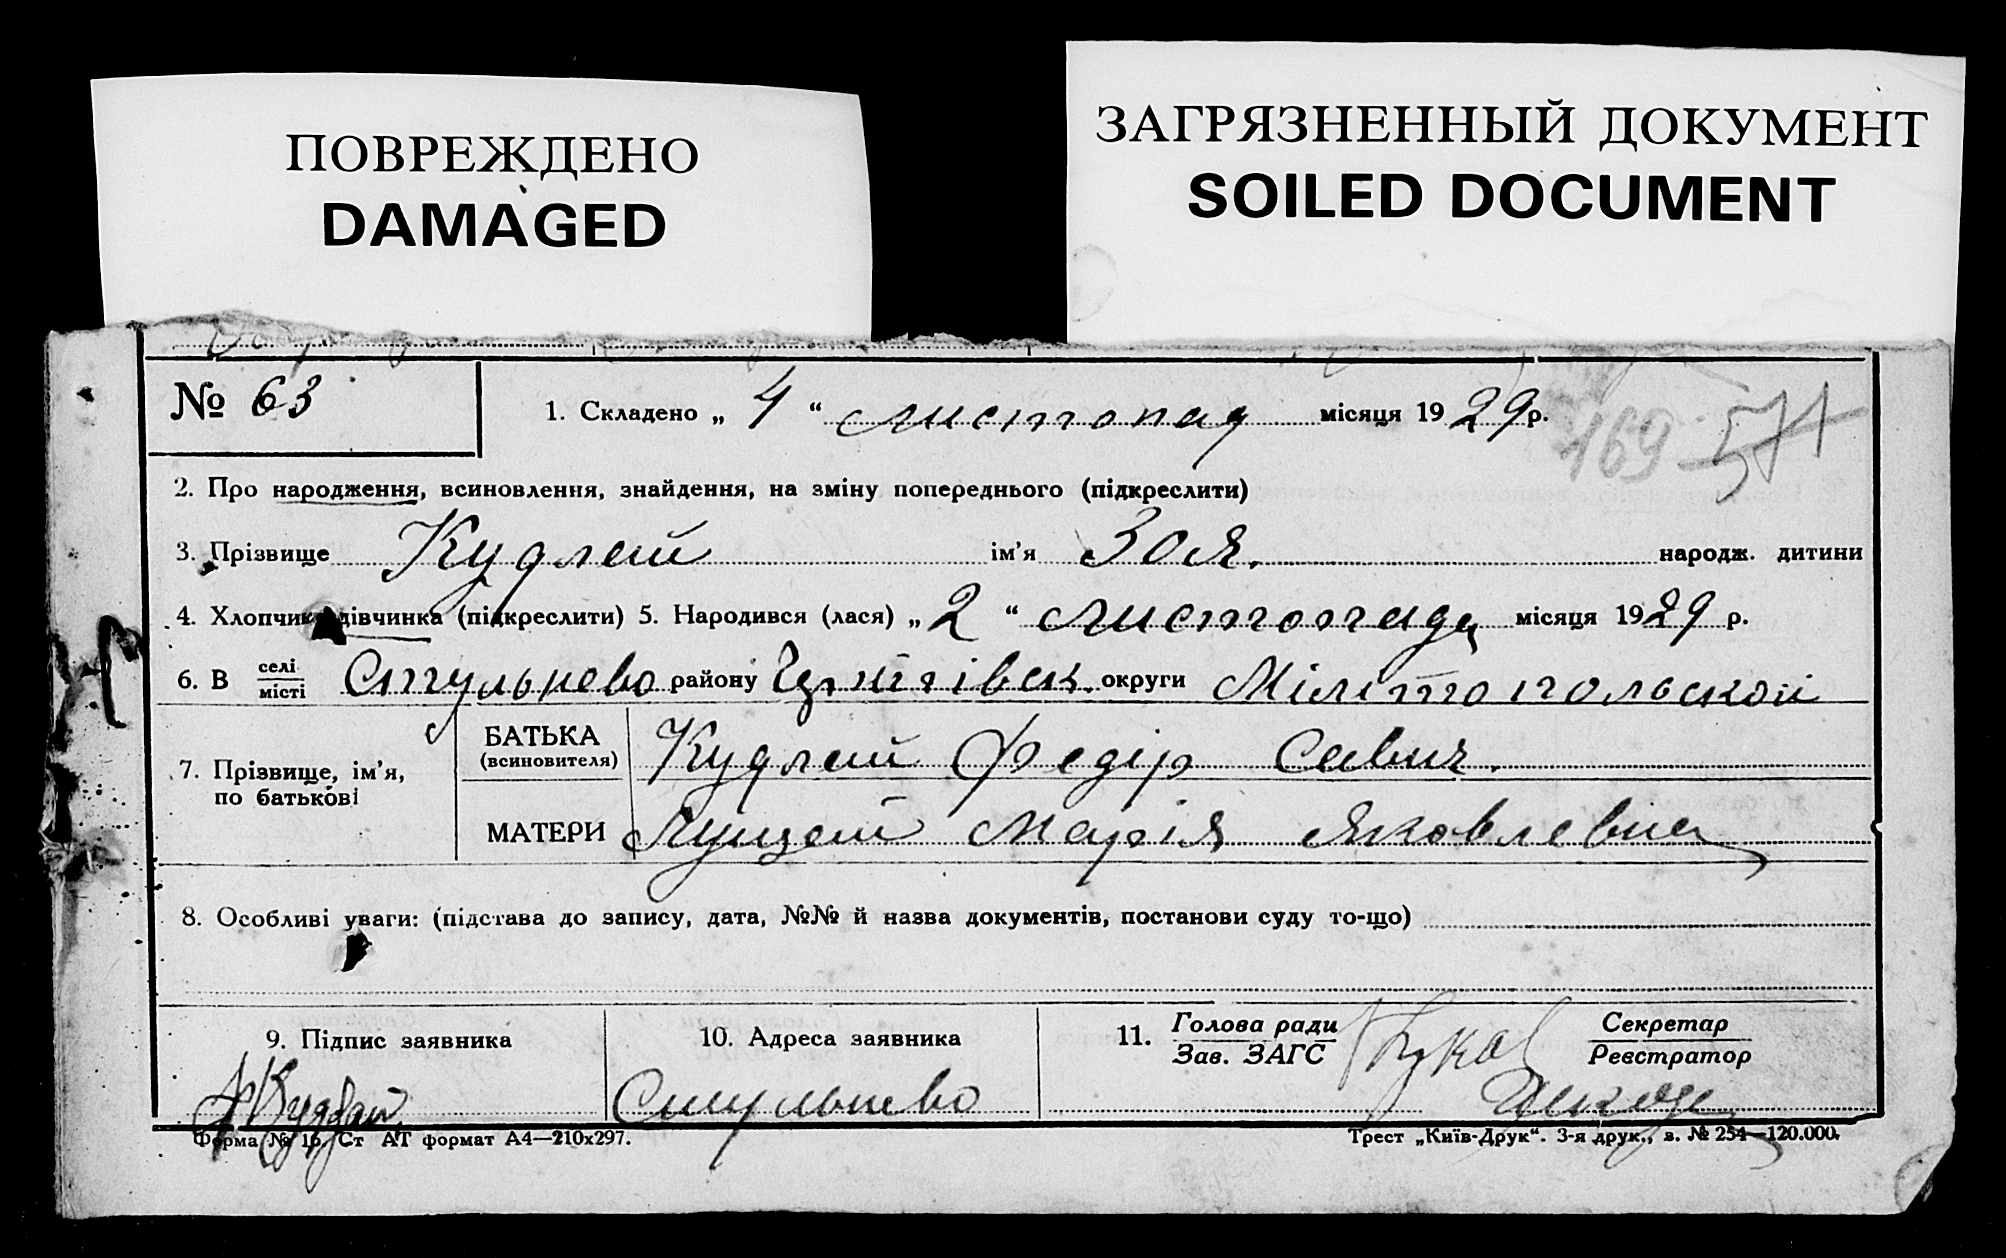 ПОВРЕЖДЕНО
DAMAGED
ЗАГРЯЗНЕННЫЙ ДОКУМЕНТ
SOILED DOCUMENT
№ 63
1. Складено „ 4 “ листопад місяця 1929 р.
169 571
2. Про народження, всиновлення, знайдення, на зміну попереднього (підкреслити)
3. Прізвище Кудлай ім'я Зоя. народж. дитини
4. Хлопчик дівчинка (підкреслити) 5. Народився (лася) „ 2 “ листопада місяця 1929 р.
6. В селі місті Стульнево району округи Мілітопольской
7. Прізвище, ім'я, по батькові
БАТЬКА (всиновителя) Кудлай Федір Савич.
МАТЕРИ Марія Яковлевна
8. Особливі уваги: (підстава до запису, дата, №№ й назва документів, постанови суду то-що)
9. Підпис заявника
Ф Кудлай
10. Адреса заявника
Стульнево
11. Голова ради Зав. ЗАГС
Секретар Реєстратор
Форма № 16. Ст АТ формат А4—210х297.
Трест „Київ-Друк“. 3-я друк., з. № 254—120.000.